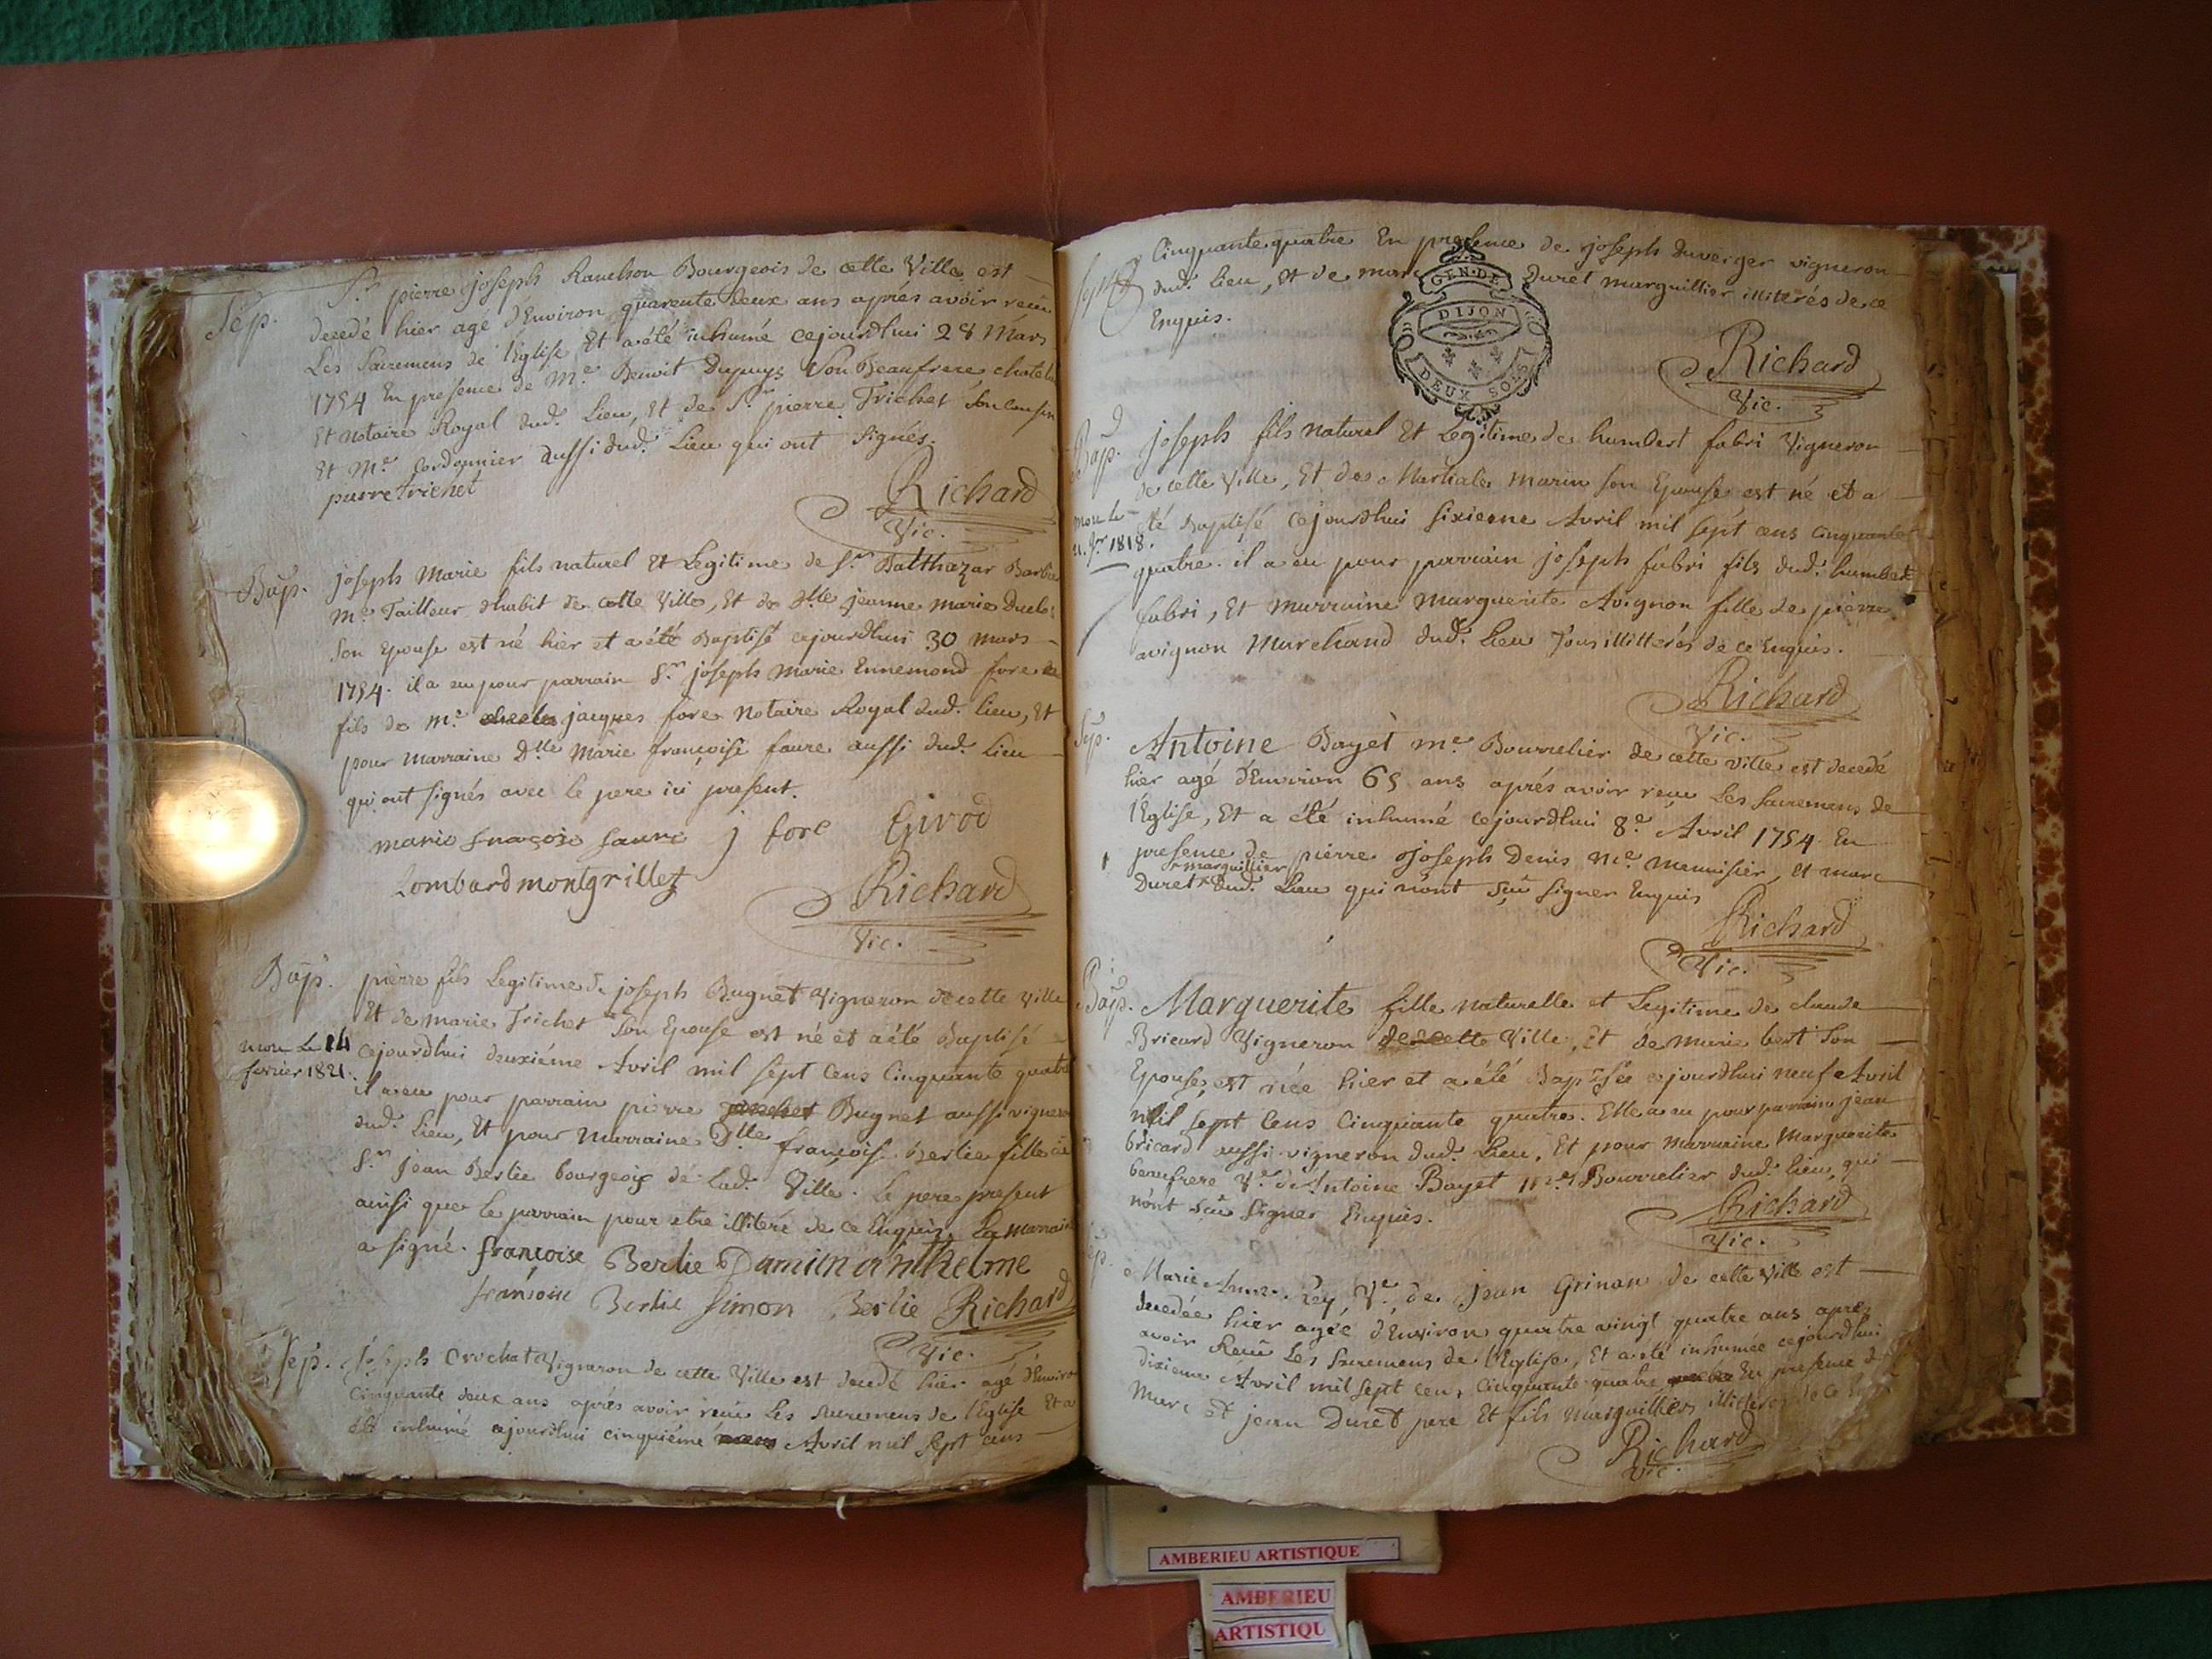 Sép.
S.r pierre joseph Ranchon Bourgeois de cette Ville est
decedé hier agé d'Environ quarente deux ans aprés avoir reçu
Les Sacremens de l'Eglise Et a été inhumé cejourdhui 28 Mars
1754 En presence de M.e Benoit Dupuys Son Beaufrere chatelain
Et notaire Royal dud. Lieu, Et de S.r pierre Trichet Son Cousin
Et M.e Cordonnier aussi dud. Lieu qui ont Signés.
pierre trichet
Richard
Vic.
Bap.
joseph Marie fils naturel Et Legitime de S.r Balthazar
M.e Tailleur d'habit de cette Ville, Et de d.lle jeanne marie
Son Epouse est né hier et a été Baptisé cejourdhui 30 mars
1754. il a eu pour parrain S.r joseph Marie Ennemond fore
fils de M.e jacques fore Notaire Royal dud. lieu, Et
pour Marraine D.lle Marie françoise faure aussi dud. Lieu
qui ont signés avec le pere ici present.
marie françoise faure j fore Girod
Lombard montgrillet
Richard
Vic.
Bap.
pierre fils Legitime de joseph Bugnet Vigneron de cette Ville
Et de marie Trichet Son Epouse est né et a été Baptisé
mort Le 14
fevrier 1821.
cejourdhui deuxiéme Avril mil sept Cens Cinquante quatre
il a eu pour parrain pierre Bugnet aussi vigneron
dud. Lieu, Et pour Marraine D.lle françoise Berlie fille de
S.r Jean Berlie bourgeois de Lad. Ville. Le pere present
ainsi que le parrain pour etre illiteré de ce Enquis. La marraine
a signé. françoise Berlie Damien anthelme
françoise Berlie Simon Berlie Richard
Vic.
Sep.
joseph Crochat Vigneron de cette Ville est decedé hier agé d'Environ
Cinquante deux ans aprés avoir reçu Les Sacremens de l'Eglise Et a
été inhumé cejourdhui cinquiéme Avril mil Sept cens
Cinquante quatre En presence de joseph duverger vigneron
dud. lieu, Et de marc Duret marguillier illiterés de ce
Enquis.
GEN. DE
DIJON
DEUX SOLS
Richard
Vic.
Bap.
joseph fils naturel Et Legitime de humbert fabri Vigneron
de cette Ville, Et de Martiale Marin son Epouse est né et a
mort le
1818.
été Baptisé cejourdhui sixieme Avril mil sept cens cinquante
quatre. il a eu pour parrain joseph fabri fils dud. humbert
fabri, Et marraine Marguerite Avignon fille de pierre
avignon Marchand dud. Lieu Tous illitterés de ce Enquis.
Richard
Vic.
Sep.
Antoine Bayet m.e Bourrelier de cette ville est decedé
hier agé d'Environ 65 ans aprés avoir reçu Les Sacremens de
l'Eglise, Et a été inhumé cejourdhui 8.e Avril 1754. En
presence de pierre joseph Denis M.e Menuisier, et marc
marguillier
Duret dud. Lieu qui n'ont Sçû signer Enquis
Richard
Vic.
Bap.
Marguerite fille naturelle et Legitime de claude
Bricard Vigneron de cette Ville, Et de Marie bert Son
Epouse, est née hier et a été Baptisée cejourdhui neuf Avril
mil sept Cens Cinquante quatre. Elle a eu pour parrain jean
bricard aussi vigneron dud. Lieu, Et pour Marraine Marguerite
beaufrere V.e d'Antoine Bayet M.e Bourrelier dud. lieu, qui
n'ont Sçû Signer Enquis.
Richard
Vic.
Marie Anne Rey V.e de jean Grinan de cette Ville est
decedée hier agée d'Environ quatre vingt quatre ans aprés
avoir Reçu Les Sacremens de l'Eglise, Et a été inhumée cejourdhui
dixieme Avril mil sept cens cinquante quatre En presence de
Marc et jean Duret pere Et fils Marguilliers illitterés de ce
Richard
Vic.
AMBERIEU ARTISTIQUE
AMBERIEU
ARTISTIQU